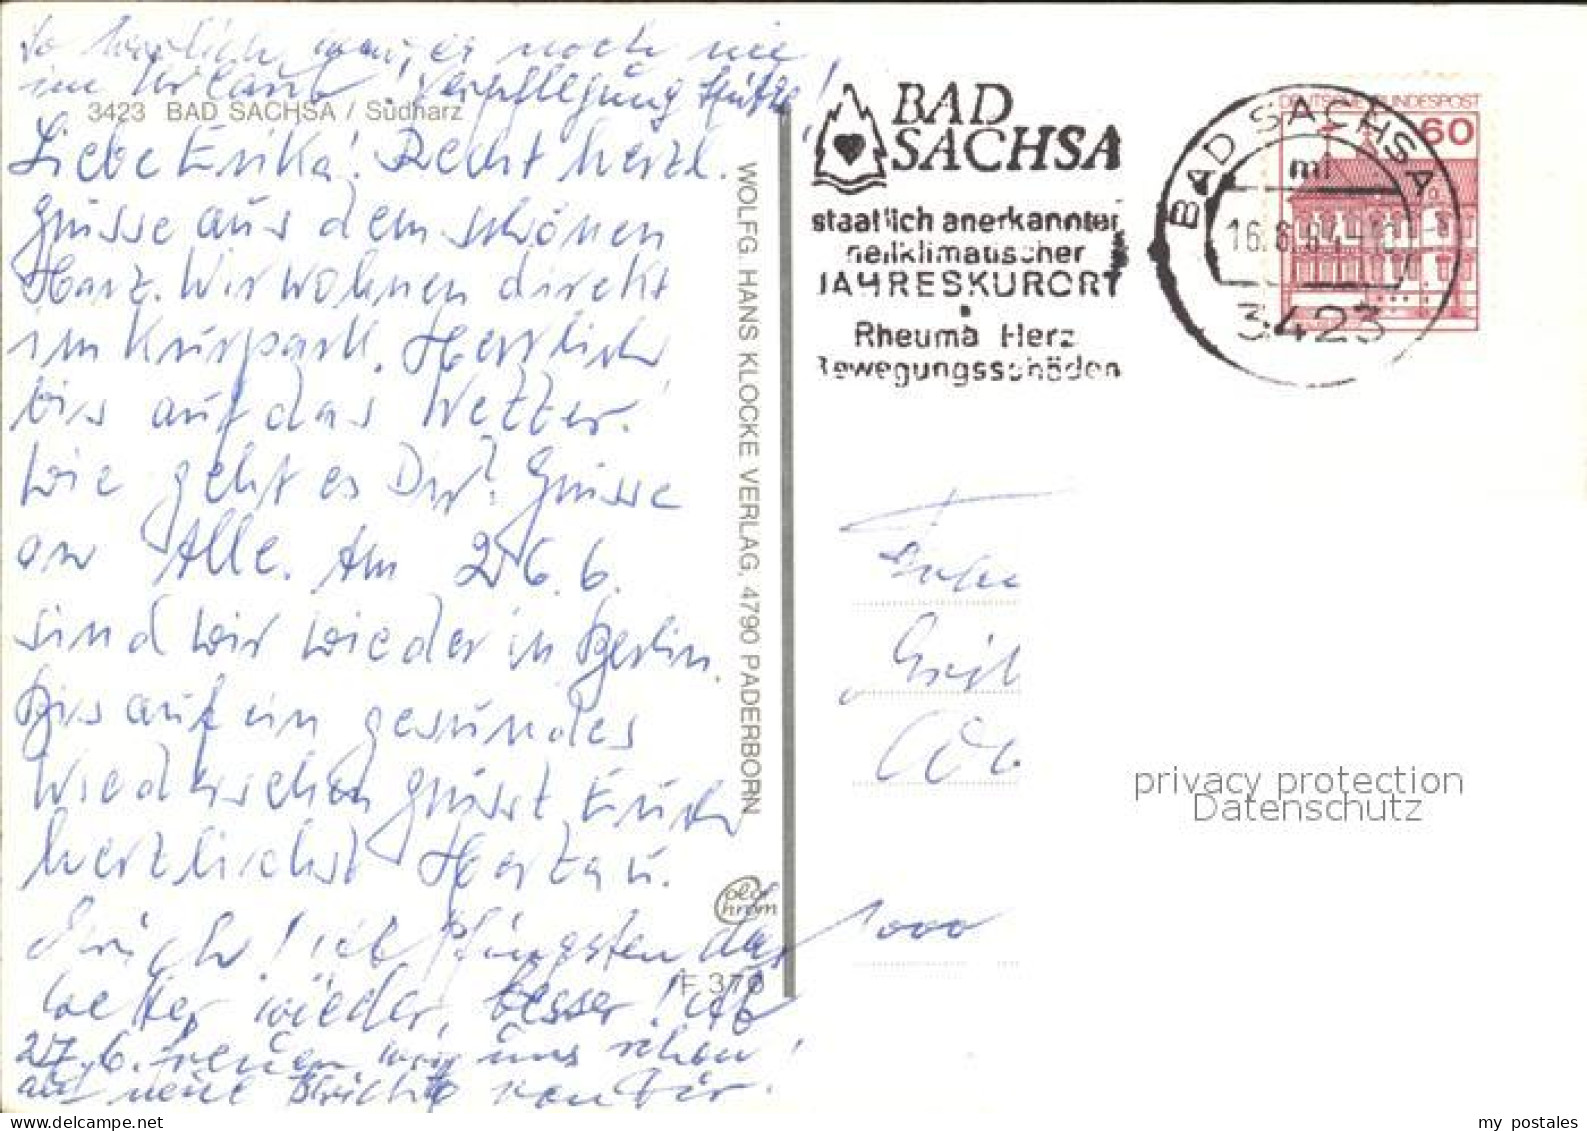 So herrlich war es noch nie
im Urlaub. Verpflegung Spitze!
3423 BAD SACHSA / Südharz
Liebe Erika! Recht herzl.
Grüsse aus dem schönen
Harz. Wir wohnen direkt
im Kurpark. Herrlich
bis auf das Wetter.
Wie geht es Dir? Grüsse
an Alle. Am 26.6.
sind wir wieder in Berlin.
Bis auf ein gesundes
Wiedersehen grüsst Euch
herzlichst Herta u.
Erich! ist Pfingsten das
Wetter wieder besser! Ab
27.6. freuen wir uns schon
auf neue Berichte von Dir.
WOLFG. HANS KLOCKE VERLAG, 4790 PADERBORN
Colo
Chrom
F 370
BAD
SACHSA
staatlich anerkannter
heilklimatischer
JAHRESKURORT
Rheuma Herz
Bewegungsschäden
BAD SACHSA
ml
16.6.84
3423
DEUTSCHE BUNDESPOST
60
1000
privacy protection
Datenschutz
my postales